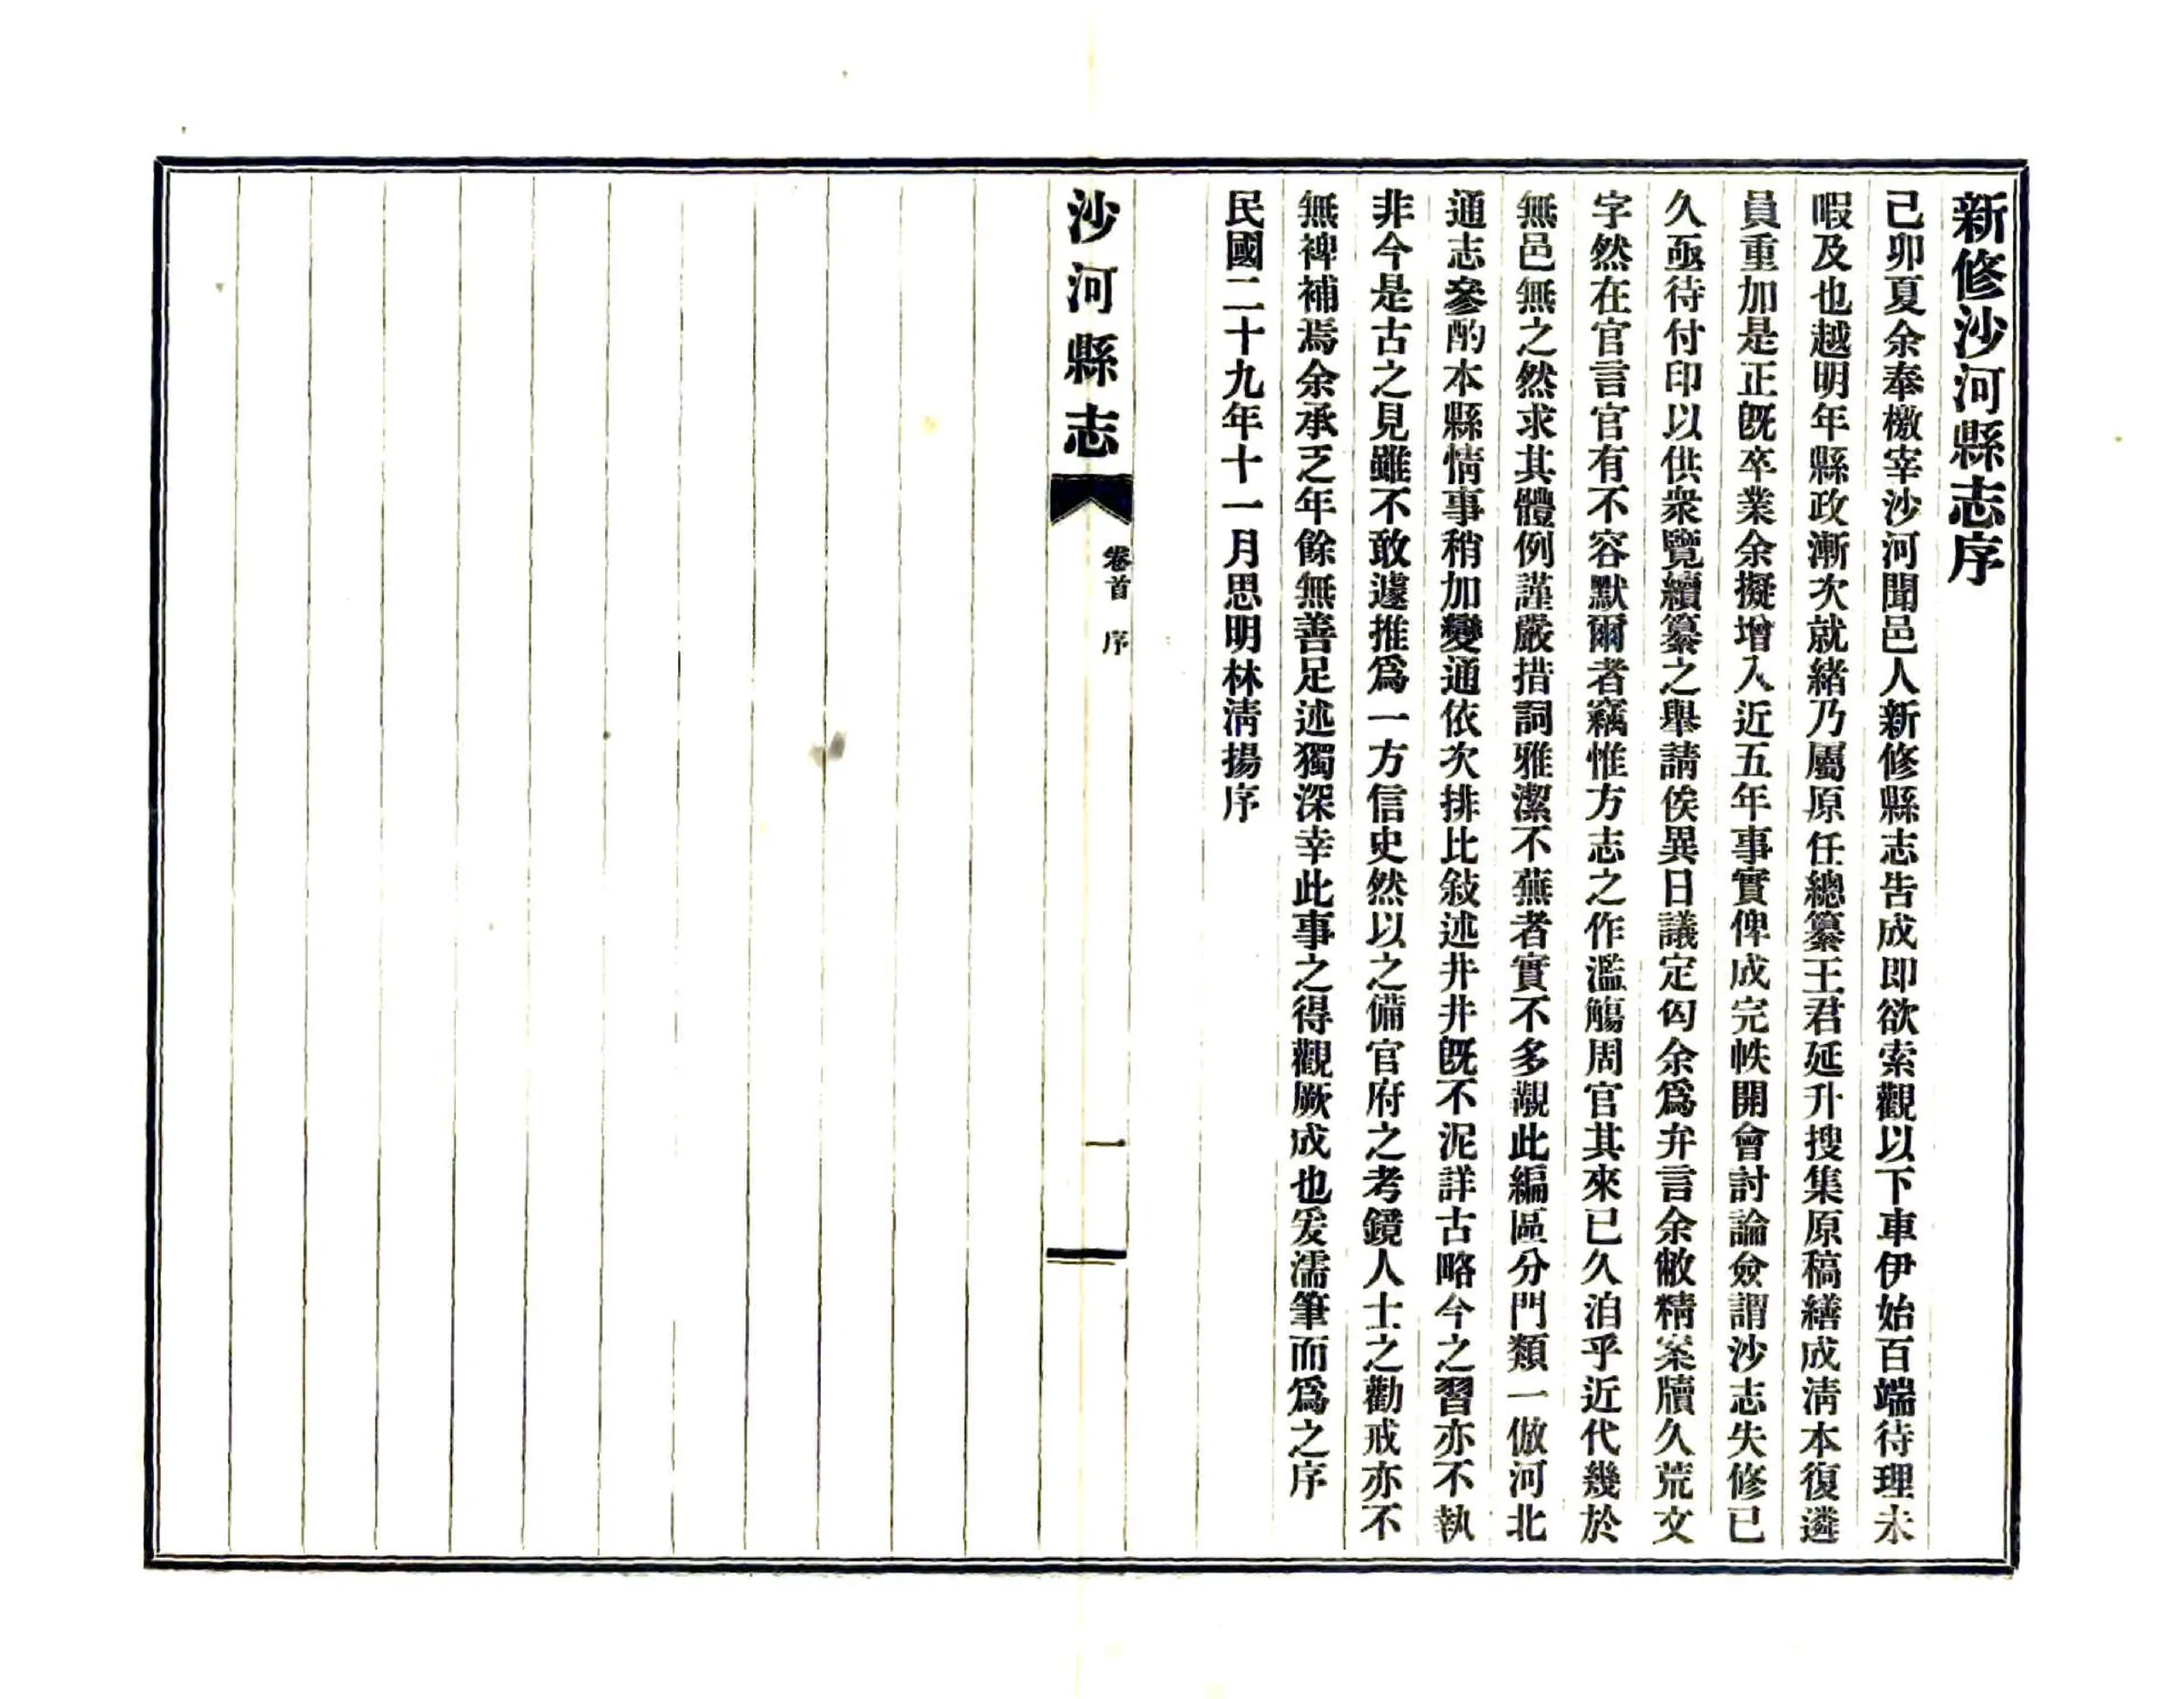 新修沙河縣志序
己卯夏余奉檄宰沙河聞邑人新修縣志告成即欲索觀以下車伊始百端待理未
暇及也越明年縣政漸次就緒乃屬原任總纂王君延升搜集原稿繕成淸本復遴
員重加是正旣卒業余擬增入近五年事實俾成完帙開會討論僉謂沙志失修已
久亟待付印以供衆覽續纂之舉請俟異日議定匃余爲弁言余敝精案牘久荒文
字然在官言官有不容默爾者竊惟方志之作濫觴周官其來已久洎乎近代幾於
無邑無之然求其體例謹嚴措詞雅潔不蕪者實不多覯此編區分門類一倣河北
通志參酌本縣情事稍加變通依次排比敍述井井旣不泥詳古略今之習亦不執
非今是古之見雖不敢遽推爲一方信史然以之備官府之考鏡人士之勸戒亦不
無裨補焉余承乏年餘無善足述獨深幸此事之得觀厥成也爰濡筆而爲之序
民國二十九年十一月思明林淸揚序
沙河縣志
卷首 序
一